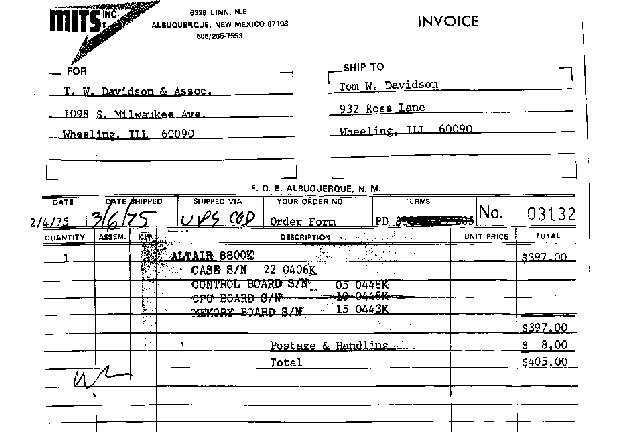 MITS INC
6328 LINN, N.E
ALBUQUERQUE, NEW MEXICO 87108
505/265-7553
INVOICE
FOR
T. W. Davidson & Assoc.
1098 S. Milwaukee Ave.
Wheeling, ILL 60090
SHIP TO
Tom W. Davidson
932 Ross Lane
Wheeling, ILL 60090
F. O. B. ALBUQUERQUE, N. M.
DATE DATE SHIPPED SHIPPED VIA YOUR ORDER NO TERMS No. 03132
2/4/75 3/6/75 UPS COD Order Form PD
QUANTITY ASSEM. KIT DESCRIPTION UNIT PRICE TOTAL
1 ALTAIR 8800K $397.00
CASE S/N 22 0406K
CONTROL BOARD S/N 05 0448K
CPU BOARD S/N
MEMORY BOARD S/N 15 0443K
$397.00
Postage & Handling $ 8.00
Total $405.00